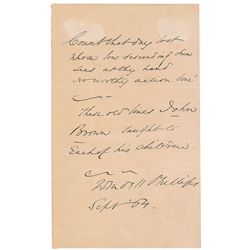 Count that day lost
Whose low descending sun
Sees at thy hand
No worthy action done
These old lines John
Brown taught to
Each of his children.
Wendell Phillips
Sept '64.